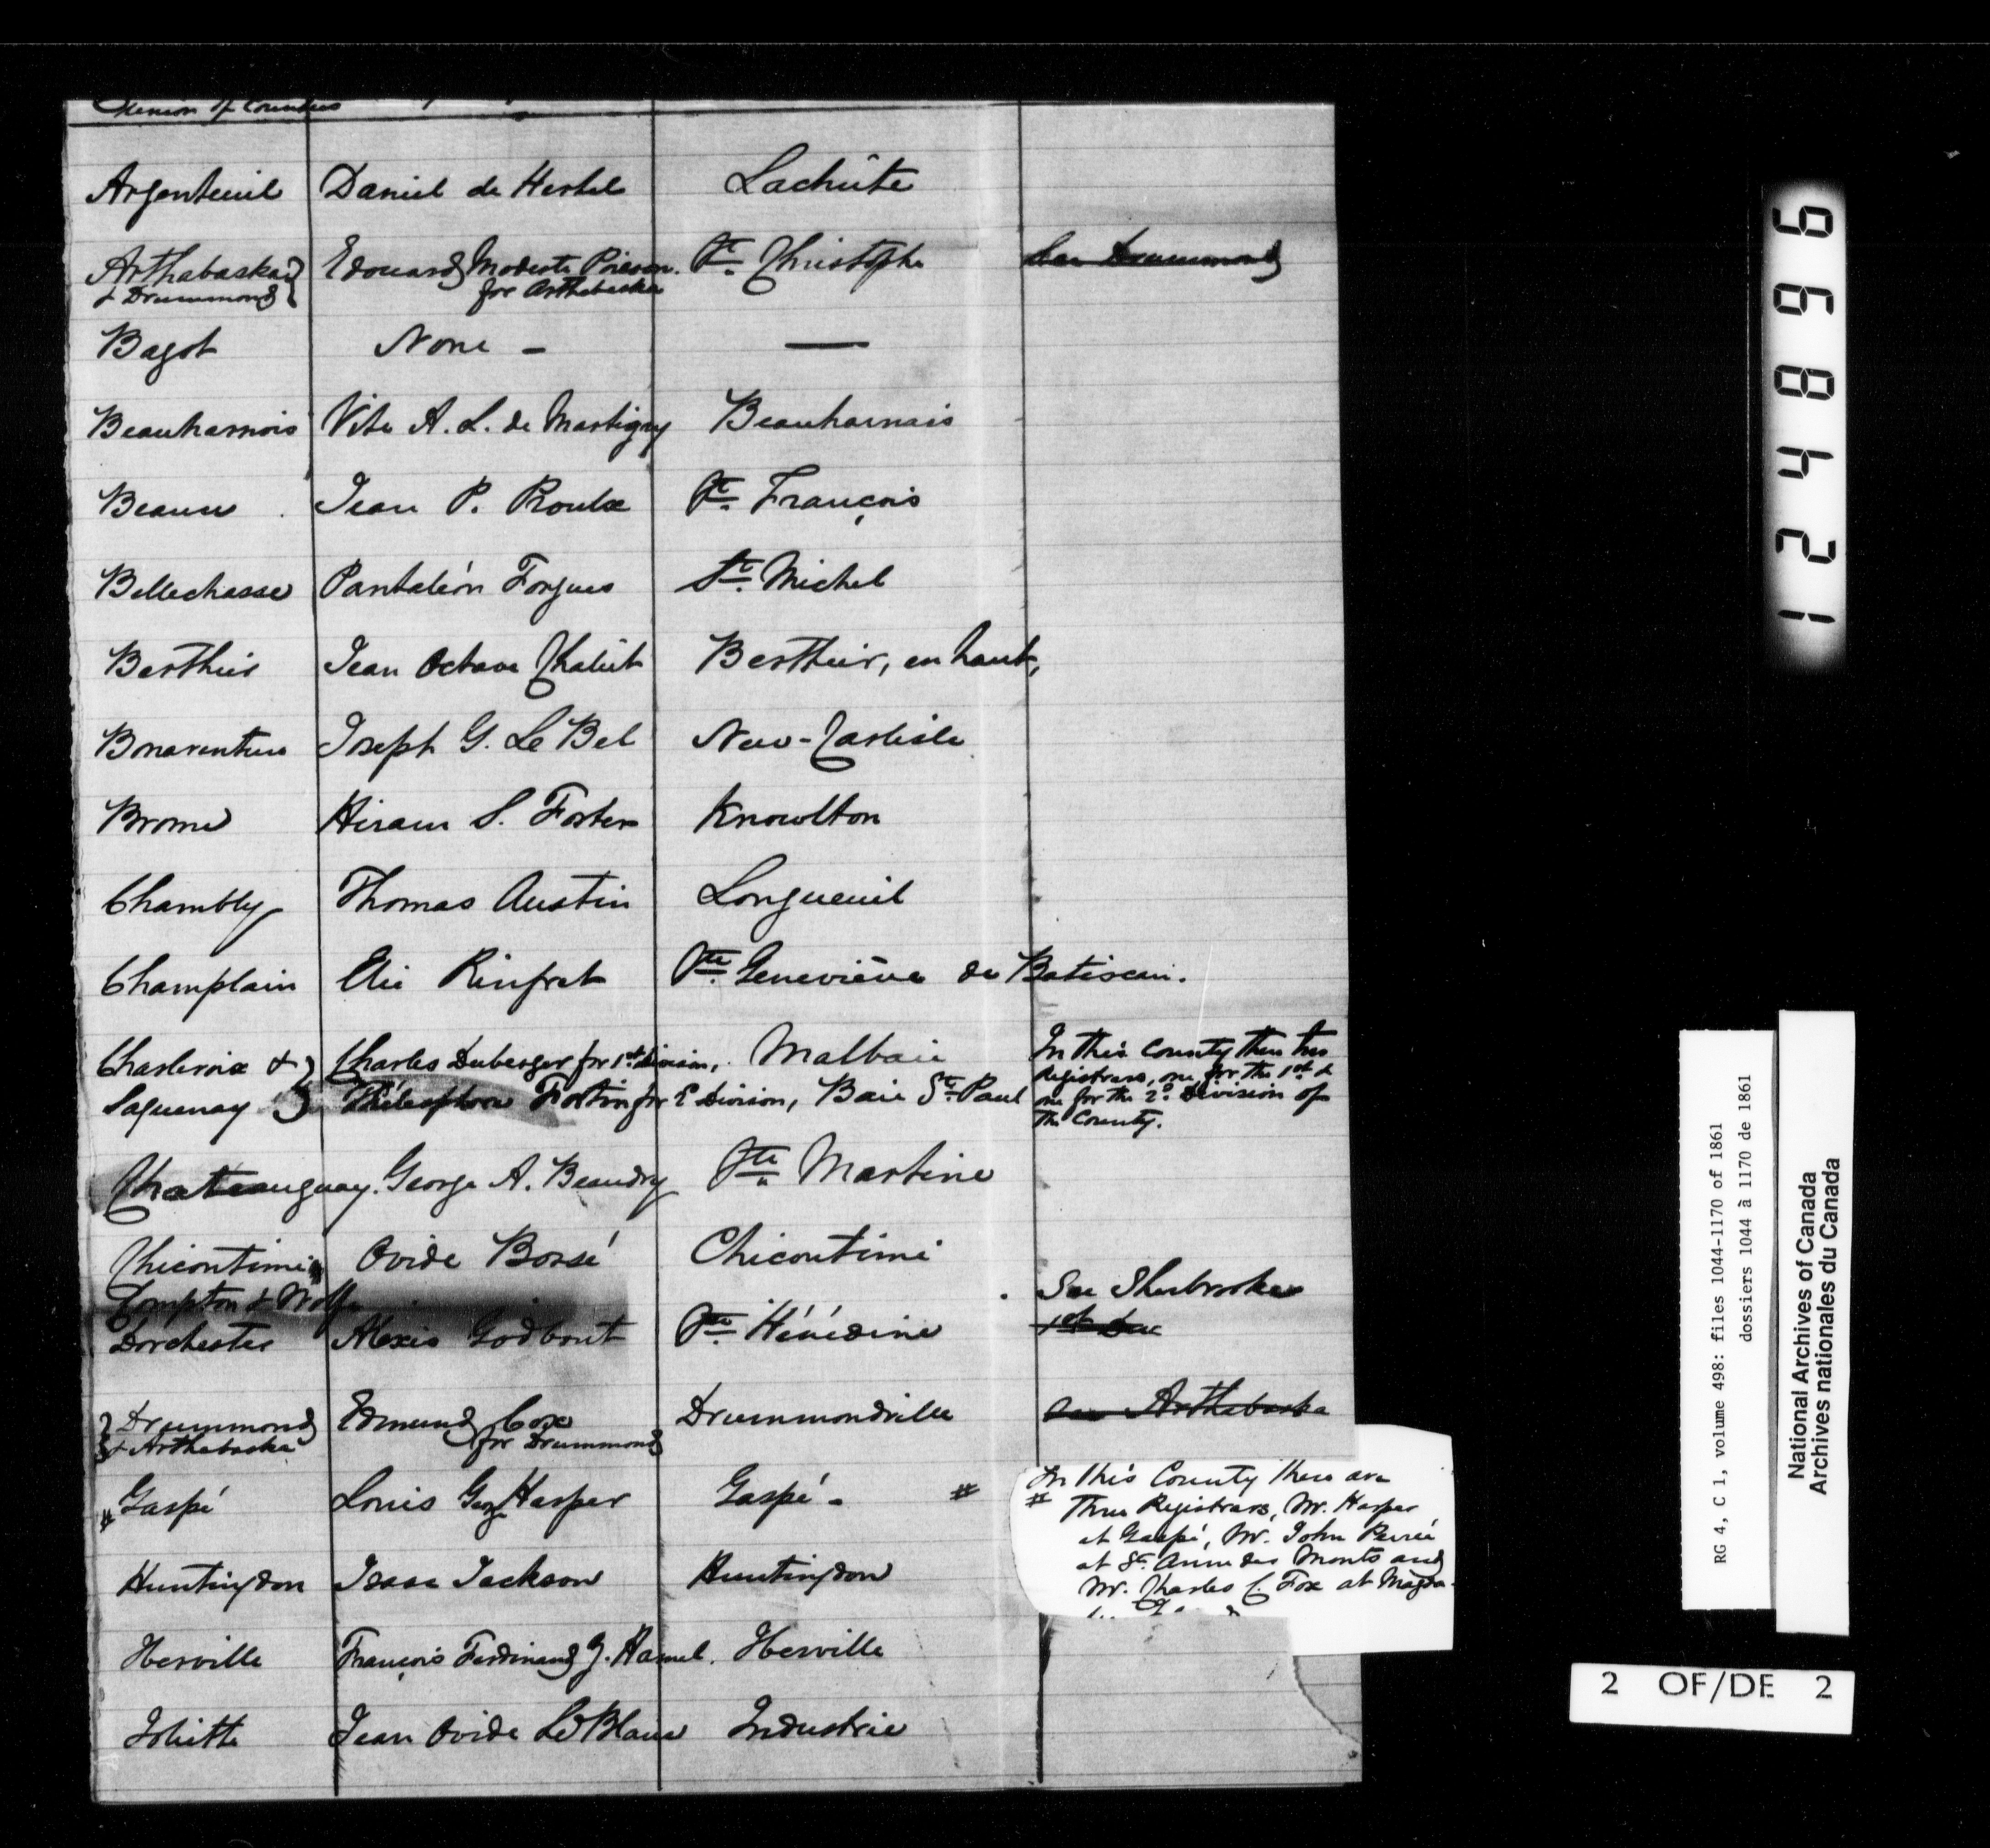 Union of Counties
Argenteuil Daniel de Hertel Lachûte
Arthabaska Edouard Modeste Poisson. St. Christophe See Drummond
& Drummond for Arthabaska
Bagot None — —
Beauharnois Vite A. L. de Martigny Beauharnais
Beauce Jean P. Proulx St. François
Bellechasse Pantaléon Forgues St. Michel
Berthier Jean Octave Chalût Berthier, en haut,
Bonaventure Joseph G. Le Bel New-Carlisle
Brome Hiram S. Foster Knowlton
Chambly Thomas Austin Longueuil
Champlain Elie Rinfret Ste. Geneviève de Batiscan.
Charlevoix & Charles Duberger for 1st division, Malbaie In this County there two
Saguenay Télesphore Fortin for 2 Division, Baie St. Paul Registrars, one for the 1st &
one for the 2d. Division of
the County.
Chateauguay. George A. Beaudry Ste. Martine
Chicoutimi Ovide Bossé Chicoutimi
Compton & Wolfe See Sherbrooke
Dorchester Alexis Godbout Ste. Hénédine
Drummond Edmund Cox Drummondville See Arthabaska
& Arthabaska for Drummond
# Gaspé Louis Geo. Harper Gaspé - # In this County there are
# Three Registrars, Mr. Harper
at Gaspé, Mr. John Perrée
at St. Anne des Monts and
Mr. Charles C. Fox at Magda-
Huntingdon Isaac Jackson Huntingdon
Iberville François Ferdinand J. Hamel. Iberville
Joliette Jean Ovide Le Blanc Industrie
124896
RG 4, C 1, volume 498: files 1044-1170 of 1861
dossiers 1044 à 1170 de 1861
National Archives of Canada
Archives nationales du Canada
2 OF/DE 2